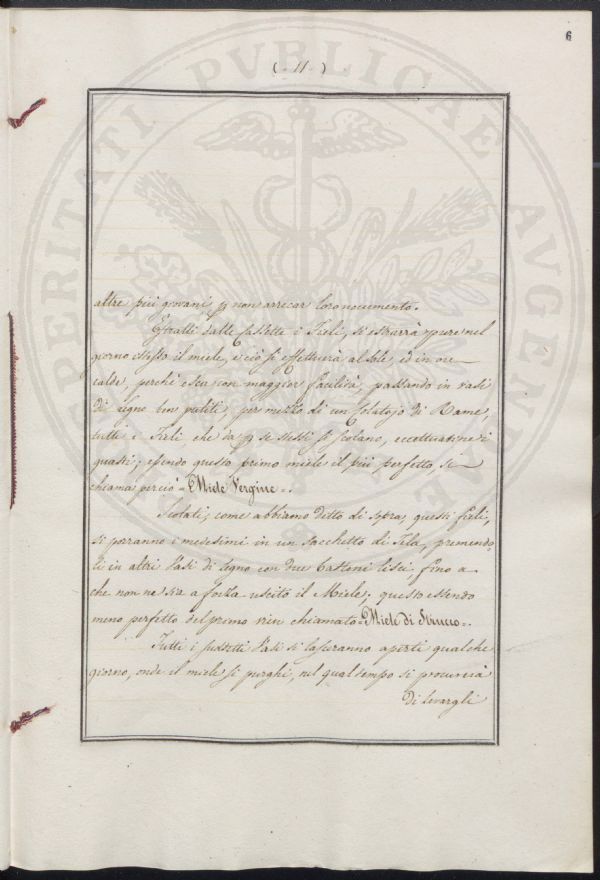 6
( 11 )
PROSPERITATI PVBLICAE AVGENDAE
altre più giovani, p non arrecar loro nocumento.
Estratti dalle suddette i Fiali, si estrarrà pure nel
giorno stesso il miele, e ciò si effettuerà al Sole, ed in ore
calde, perchè esca con maggior facilità, passando in vasi
di Legno ben puliti, per mezzo di un Colatojo di Rame,
tutti i Fiali che da p se stessi si scolano, eccettuatine i
guasti; essendo questo primo miele il più perfetto si
chiama perciò Miele Vergine.
Scolati, come abbiamo detto di sopra, questi fiali,
si porranno i medesimi in un sacchetto di Tela, premendo-
li in altri Vasi di Legno con due bastoni lisci fino a
che non ne sia a forza uscito il Miele; questo essendo
meno perfetto del primo vien chiamato Miele di
Tutti i suddetti Vasi si lasceranno aperti qualche
giorno, onde il miele si purghi, nel qual tempo si procurerà
di levargli